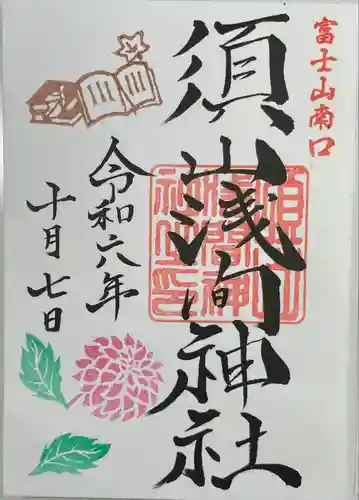 富士山南口
須山浅間神社
令和六年
十月七日